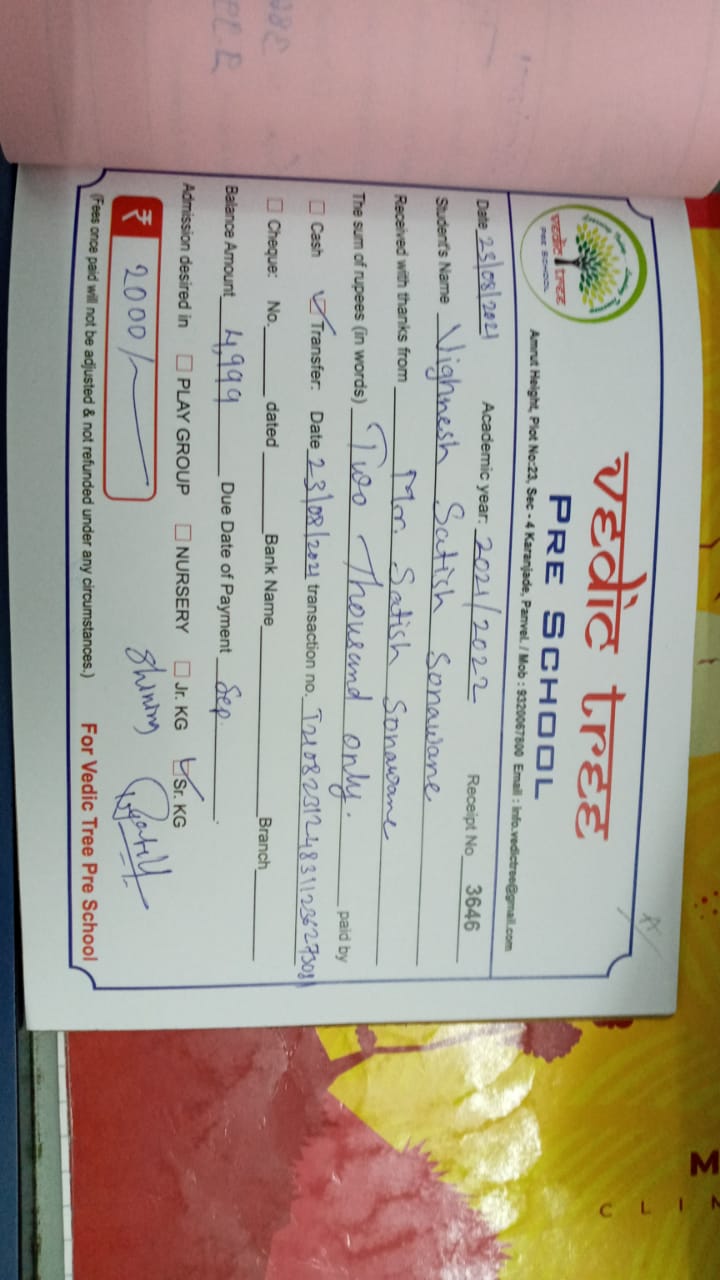 vedic tree
PRE SCHOOL
Amrut Height, Plot No:23, Sec - 4 Karanjade, Panvel. / Mob : 9320067800 Email : info.vedictree@gmail.com
vedic tree
PRE SCHOOL
Date 23/08/2021 Academic year: 2021/2022 Receipt No 3646
Student's Name Vighnesh Satish Sonawane
Received with thanks from Mr. Satish Sonawane
The sum of rupees (in words) Two Thousand only. paid by
Cash Transfer: Date 23/08/2021 transaction no. T2108231248311236273081
Cheque: No. dated Bank Name Branch
Balance Amount 4,999 Due Date of Payment Sep.
Admission desired in PLAY GROUP NURSERY Jr. KG Sr. KG
₹ 2000/- Shining
(Fees once paid will not be adjusted & not refunded under any circumstances.) For Vedic Tree Pre School
M
CLIN